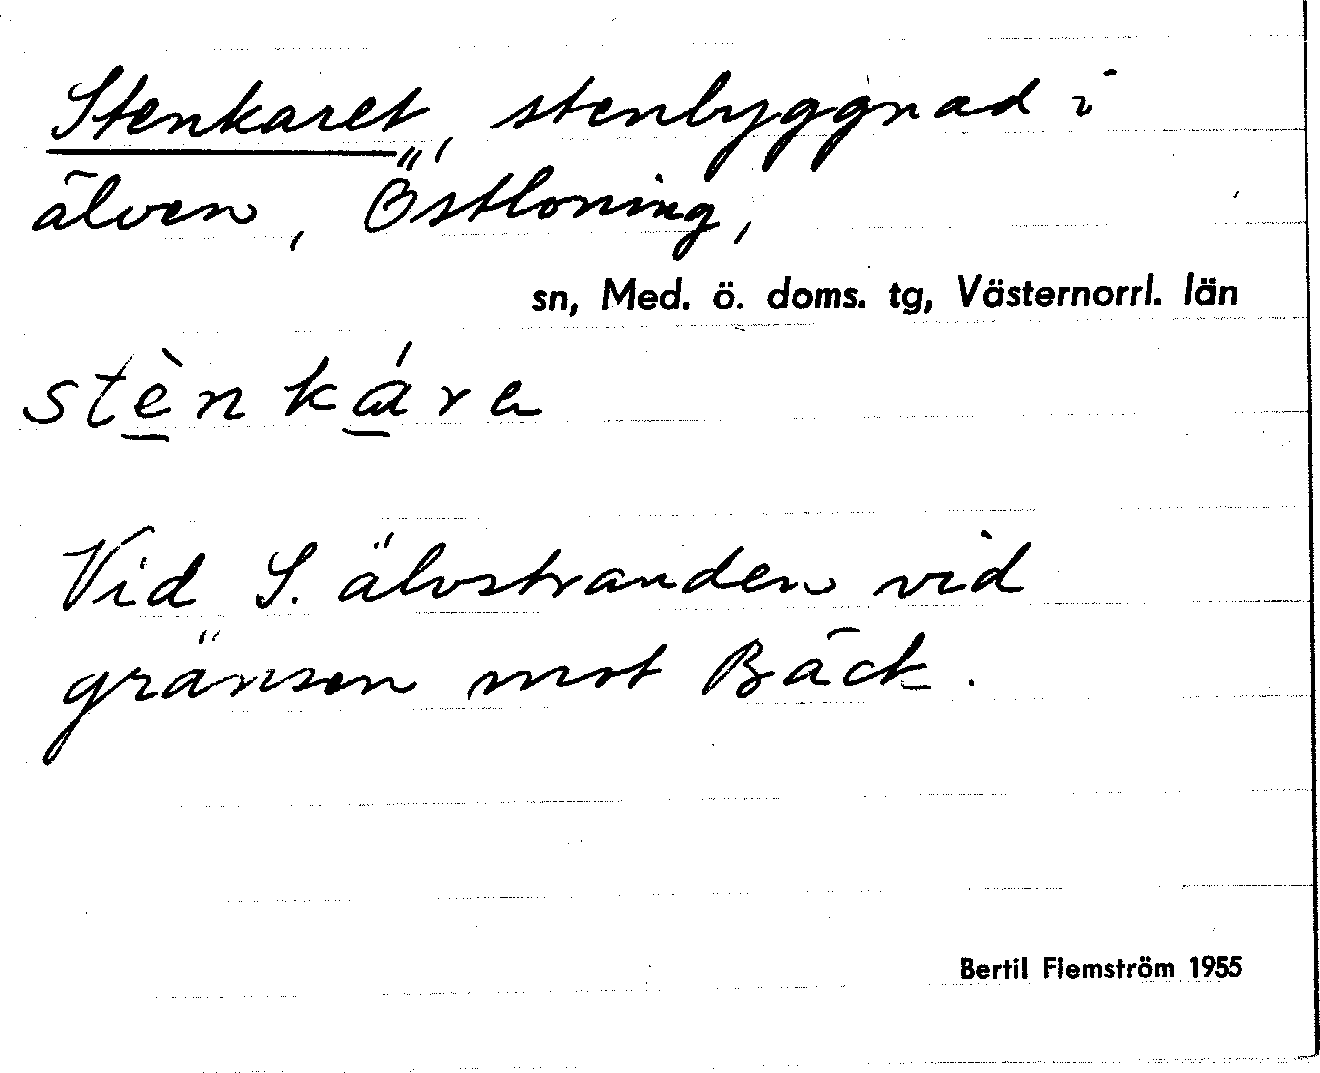 Stenkaret, stenbyggnad i
älven, Östloning,
sn, Med. ö. doms. tg, Västernorrl. län
stè̱nká̱ra
Vid S. älvstranden vid
gränsen mot Bäck.
Bertil Flemström 1955